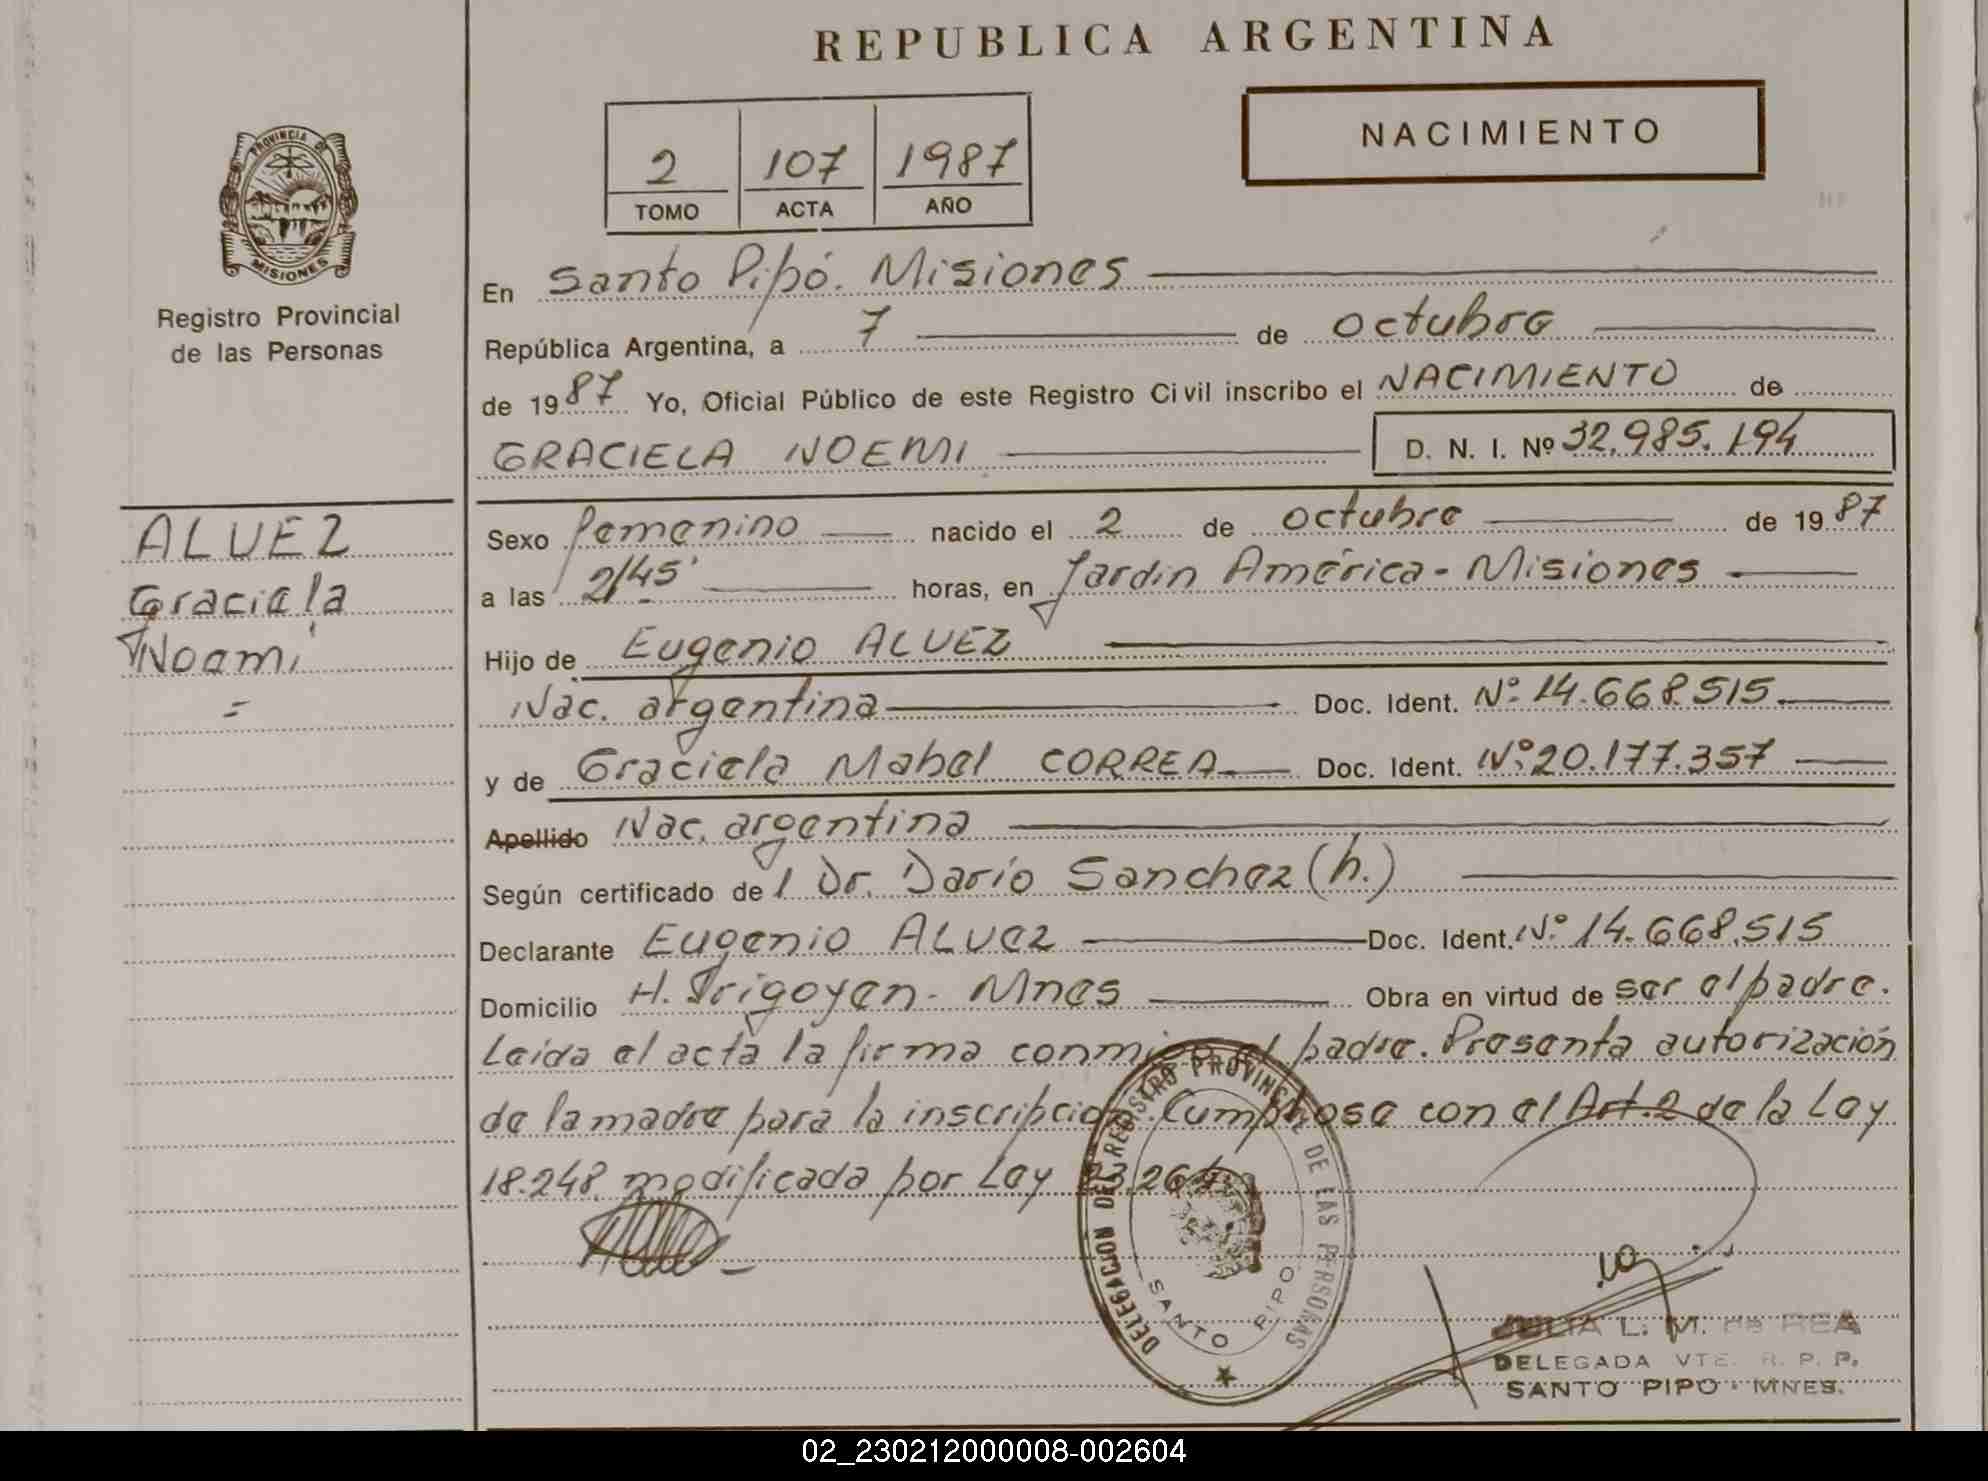 REPUBLICA ARGENTINA
NACIMIENTO
2 107 1987
TOMO ACTA AÑO
PROVINCIA DE
MISIONES
Registro Provincial
de las Personas
En Santo Pipó. Misiones
República Argentina, a 7 de octubre
de 1987 Yo, Oficial Público de este Registro Civil inscribo el NACIMIENTO de
GRACIELA NOEMI D. N. I. Nº 32.985.194
ALVEZ
Graciela
Noemi
=
Sexo femenino nacido el 2 de octubre de 1987
a las 2/45' horas, en Jardín América - Misiones
Hijo de Eugenio ALVEZ
Nac. argentina Doc. Ident. Nº 14.668.515
y de Graciela Mabel CORREA Doc. Ident. Nº 20.177.357
Apellido Nac. argentina
Según certificado del Dr. Darío Sanchez (h.)
Declarante Eugenio ALVEZ Doc. Ident. Nº 14.668.515
Domicilio H. Irigoyen - Mnes Obra en virtud de ser el padre.
Leída el acta la firma conmigo el padre. Presenta autorización
de la madre para la inscripción. Cumplióse con el Art. 2 de la Ley
18.248 modificada por Ley 23.264
DELEGACION DEL REGISTRO PROVINCIAL DE LAS PERSONAS
SANTO PIPO
JULIA L. M. de REA
DELEGADA VTE. R. P. P.
SANTO PIPO - MNES.
02_230212000008-002604